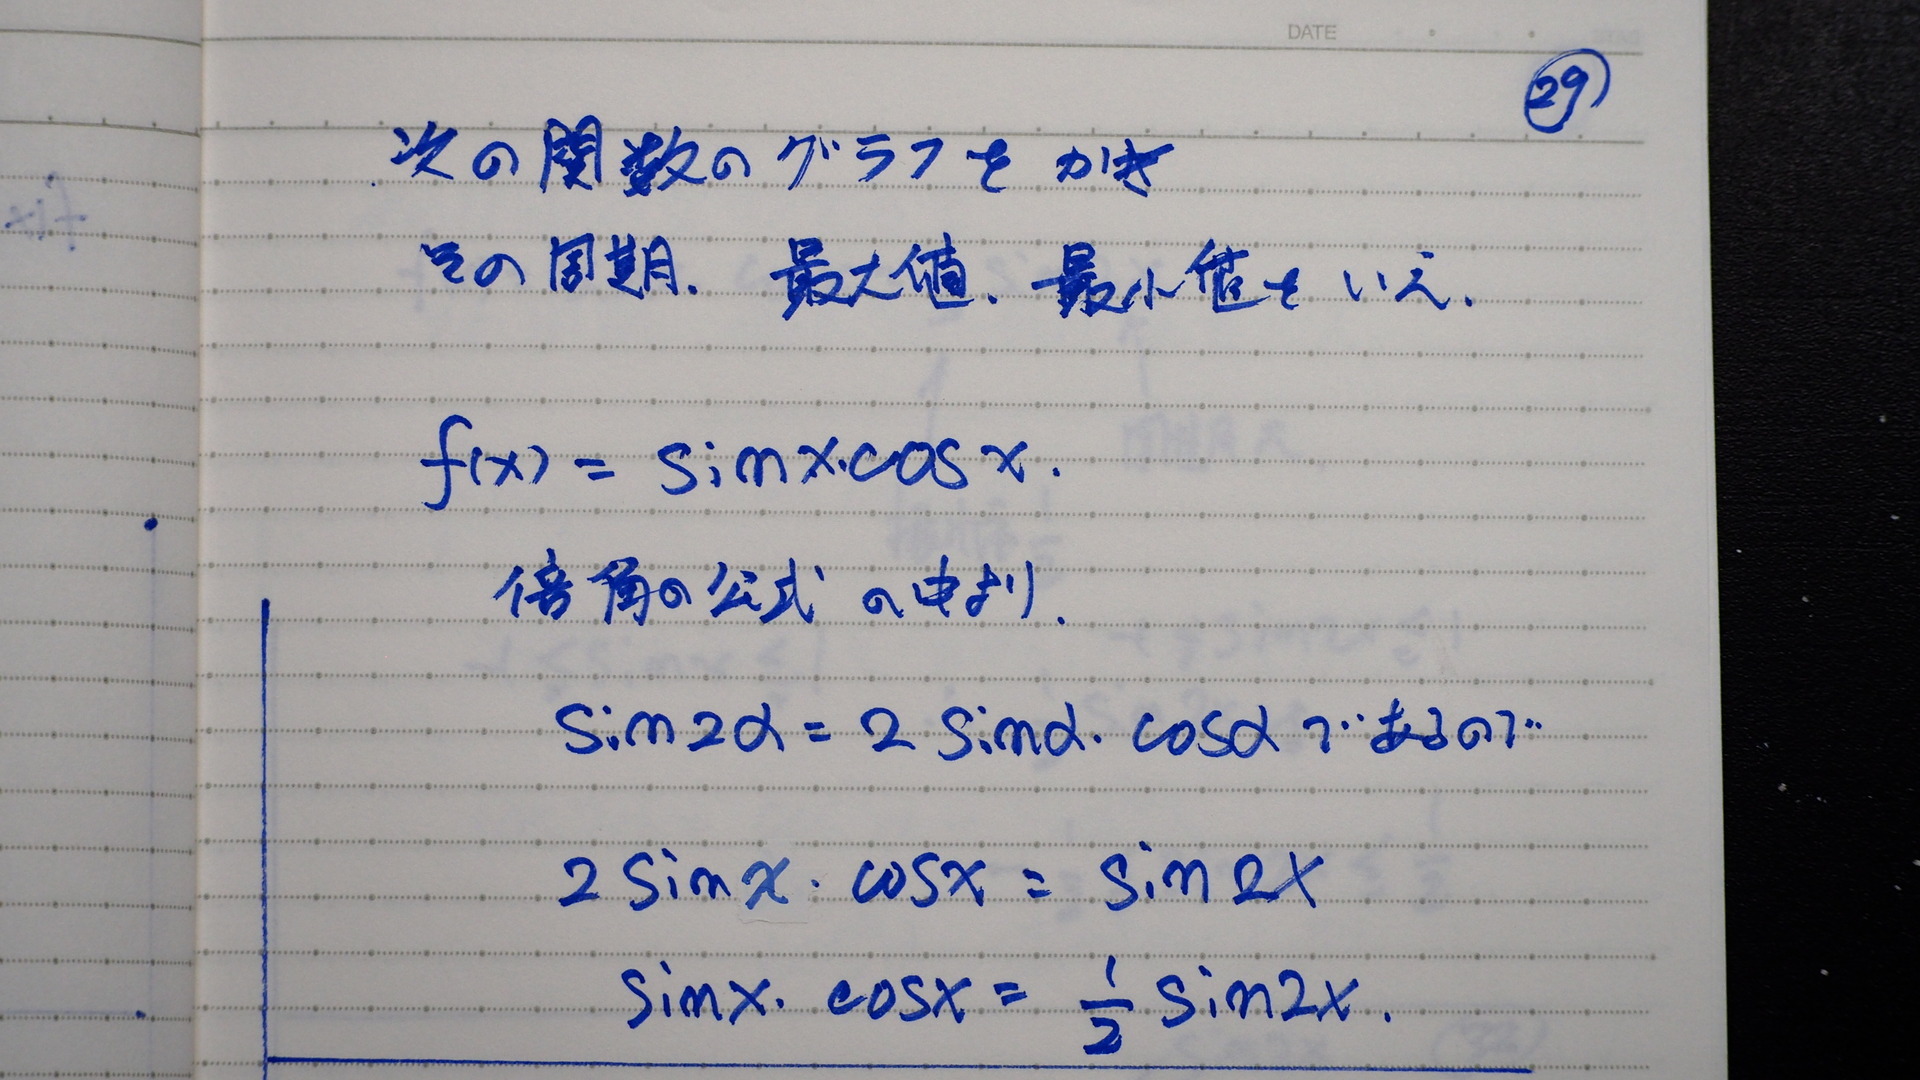 DATE
㉙
次の関数のグラフをかき
その周期、最大値、最小値をいえ.
f(x) = sinx·cosx.
倍角の公式の中より.
sin2α = 2 sinα· cosα であるので
2 sinx· cosx = sin2x
sinx· cosx = 1/2 sin2x.